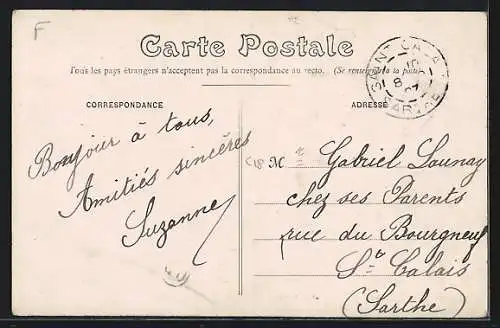 F
Carte Postale
Tous les pays étrangers n'acceptent pas la correspondance au recto. (Se renseigner à la poste)
CORRESPONDANCE
ADRESSE
SAINT CALAIS
10
8
07
SARTHE
Bonjour à tous,
Amitiés sincères
Suzanne
M
Gabriel Launay
chez ses Parents
rue du Bourgneuf
St Calais
(Sarthe)